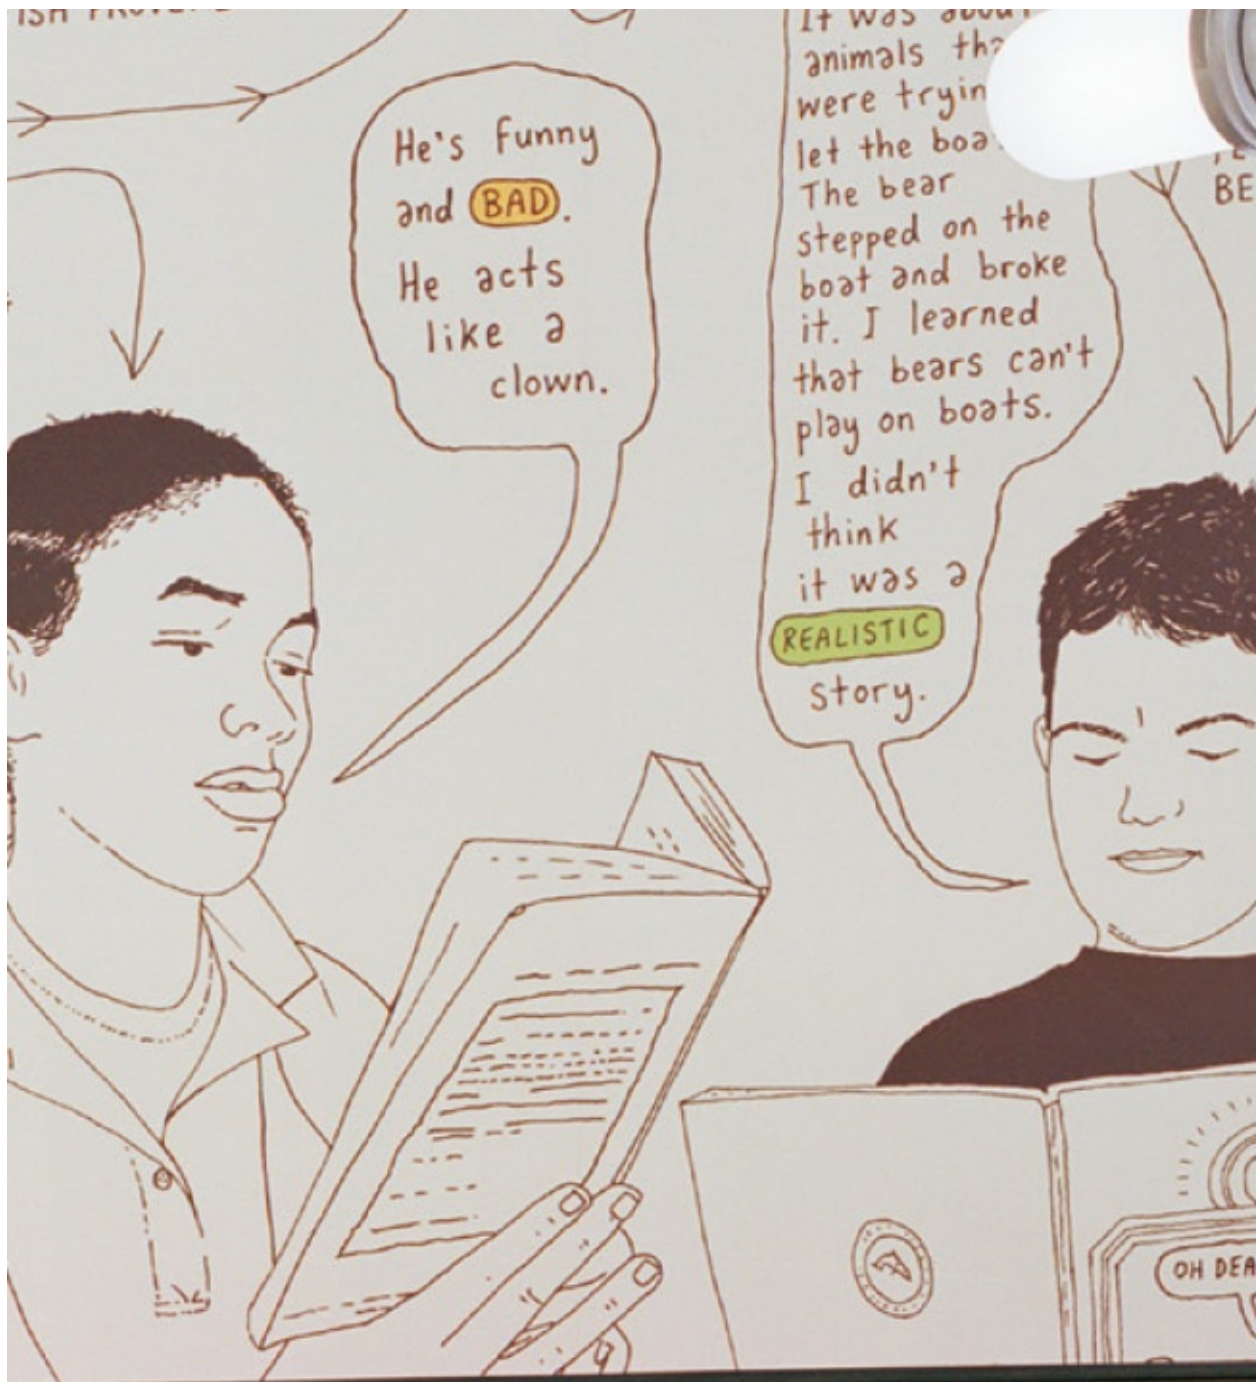 He's funny
and BAD.
He acts
like a
clown.
It was about
animals
were
let the
The bear
stepped on the
boat and broke
it. I learned
that bears can't
play on boats.
I didn't
think
it was a
REALISTIC
story.
BE
OH DEA